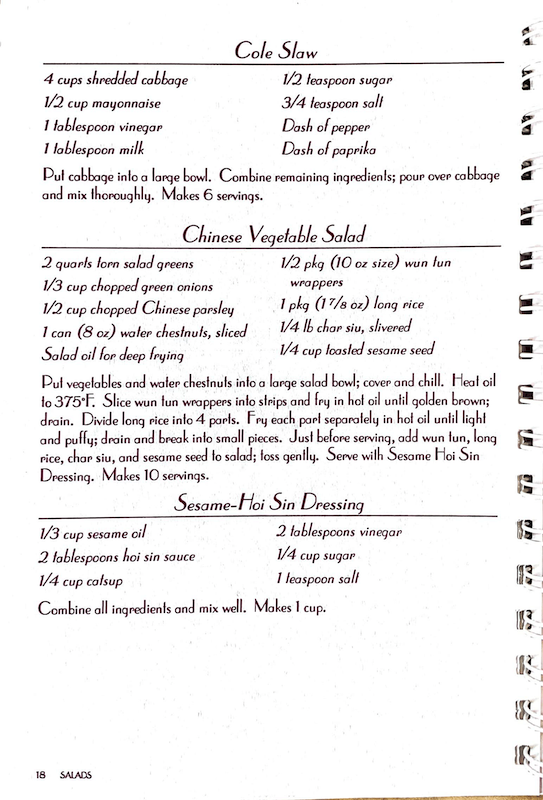 Cole Slaw
4 cups shredded cabbage
1/2 cup mayonnaise
1 tablespoon vinegar
1 tablespoon milk
1/2 teaspoon sugar
3/4 teaspoon salt
Dash of pepper
Dash of paprika
Put cabbage into a large bowl. Combine remaining ingredients; pour over cabbage
and mix thoroughly. Makes 6 servings.
Chinese Vegetable Salad
2 quarts torn salad greens
1/3 cup chopped green onions
1/2 cup chopped Chinese parsley
1 can (8 oz) water chestnuts, sliced
Salad oil for deep frying
1/2 pkg (10 oz size) wun tun
wrappers
1 pkg (1 7/8 oz) long rice
1/4 lb char siu, slivered
1/4 cup toasted sesame seed
Put vegetables and water chestnuts into a large salad bowl; cover and chill. Heat oil
to 375°F. Slice wun tun wrappers into strips and fry in hot oil until golden brown;
drain. Divide long rice into 4 parts. Fry each part separately in hot oil until light
and puffy; drain and break into small pieces. Just before serving, add wun tun, long
rice, char siu, and sesame seed to salad; toss gently. Serve with Sesame Hoi Sin
Dressing. Makes 10 servings.
Sesame-Hoi Sin Dressing
1/3 cup sesame oil
2 tablespoons hoi sin sauce
1/4 cup catsup
2 tablespoons vinegar
1/4 cup sugar
1 teaspoon salt
Combine all ingredients and mix well. Makes 1 cup.
18 SALADS